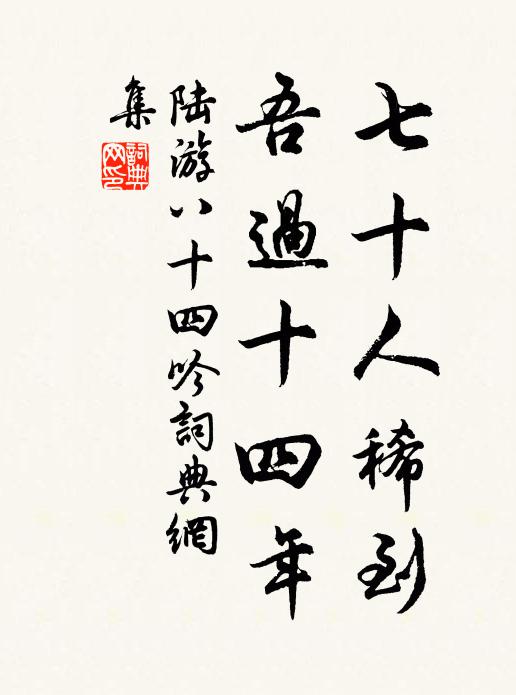 七十人稀到
吾過十四年
陆游八十四吟詞典網
集
詞典
网印